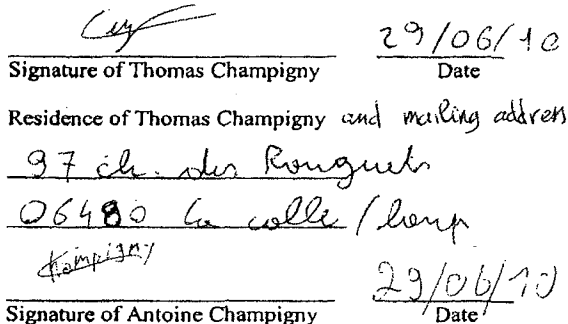 29/06/10
Signature of Thomas Champigny Date
Residence of Thomas Champigny and mailing address
97 ch. des Rouguets
06480 la colle / loup
Champigny
29/06/10
Signature of Antoine Champigny Date